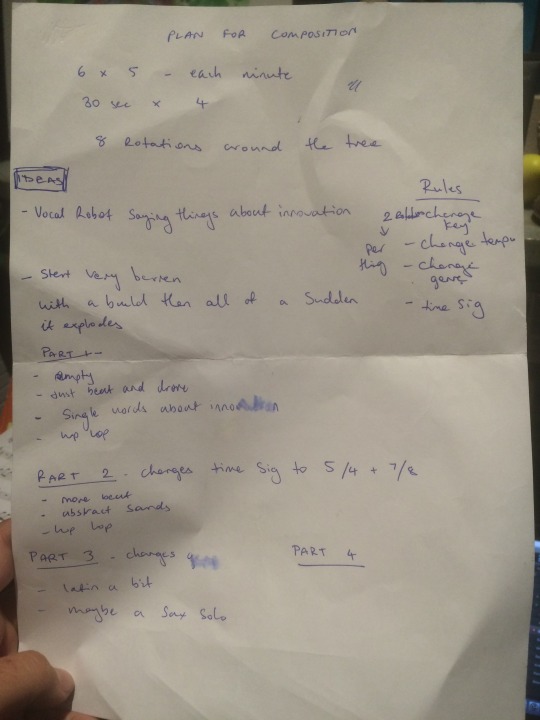 PLAN FOR COMPOSITION
6 x 5 - each minute
30 sec x 4
8 Rotations around the tree
IDEAS
- Vocal Robot Saying things about innovation
- Start very barren
with a build then all of a Sudden
it explodes
Rules
2 change key
per thing
- change tempo
- change genre
- time sig
PART 1 -
- empty
- Just beat and drone
- Single words about
- hip hop
PART 2 - changes time sig to 5/4 + 7/8
- more beat
- abstract sounds
- hip hop
PART 3 - changes
- latin a bit
- maybe a Sax Solo
PART 4